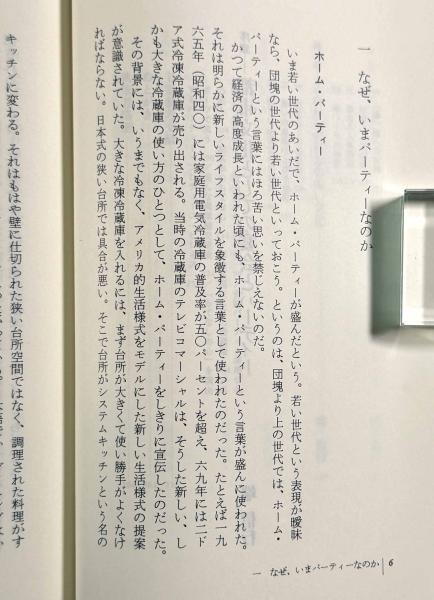 一 なぜ、いまパーティーなのか
ホーム・パーティー
いま若い世代のあいだで、ホーム・パーティーが盛んだという。若い世代という表現が曖昧
なら、団塊の世代より若い世代といっておこう。というのは、団塊より上の世代では、ホーム・
パーティーという言葉にはほろ苦い思いを禁じえないのだ。
かつて経済の高度成長といわれた頃にも、ホーム・パーティーという言葉が盛んに使われた。
それは明らかに新しいライフスタイルを象徴する言葉として使われたのだった。たとえば一九
六五年（昭和四〇）には家庭用電気冷蔵庫の普及率が五〇パーセントを超え、六九年には二ド
ア式冷凍冷蔵庫が売り出される。当時の冷蔵庫のテレビコマーシャルは、そうした新しい、し
かも大きな冷蔵庫の使い方のひとつとして、ホーム・パーティーをしきりに宣伝したのだった。
その背景には、いうまでもなく、アメリカ的生活様式をモデルにした新しい生活様式の提案
が意識されていた。大きな冷凍冷蔵庫を入れるには、まず台所が大きくて使い勝手がよくなけ
ればならない。日本式の狭い台所では具合が悪い。そこで台所がシステムキッチンという名の
一 なぜ、いまパーティーなのか 6
キッチンに変わる。それはもはや壁に仕切られた狭い台所空間ではなく、調理された料理がす